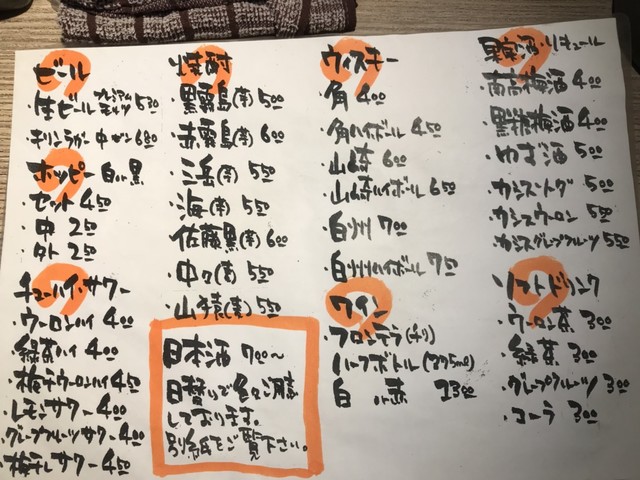 ビール
・生ビール プレミアムモルツ 550
・キリンラガー 中ビン 600
ホッピー 白 黒
・セット 450
・中 250
・外 250
チューハイ・サワー
・ウーロンハイ 400
・緑茶ハイ 400
・梅干ウーロンハイ 450
・レモンサワー 400
・グレープフルーツサワー 400
・梅干しサワー 450
焼酎
・黒霧島(芋) 500
・赤霧島(芋) 600
・三岳(芋) 550
・海(芋) 550
・佐藤黒(芋) 600
・中々(麦) 550
・山猿(麦) 550
日本酒 700〜
日替りで色々ご用意
しております。
別紙をご覧下さい。
ウィスキー
・角 400
・角ハイボール 450
・山崎 600
・山崎ハイボール 650
・白州 700
・白州ハイボール 750
ワイン
・フロンテラ(チリ)
ハーフボトル(375ml)
白 赤
果実酒・リキュール
・南高梅酒 400
・黒糖梅酒 400
・ゆず酒 500
・カシスソーダ 500
・カシスウーロン 550
・カシスグレープフルーツ 550
ソフトドリンク
・ウーロン茶 300
・緑茶 300
・グレープフルーツ 300
・コーラ 300